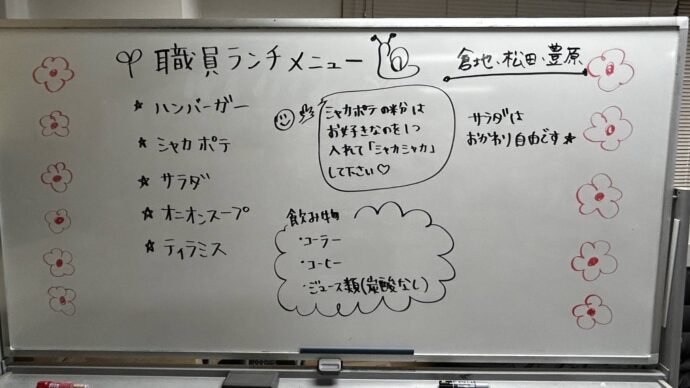 職員ランチメニュー
倉地、松田、豊原
★ ハンバーガー
★ シャカポテ
★ サラダ
★ オニオンスープ
★ ティラミス
シャカポテの粉は
お好きなのを1つ
入れて「シャカシャカ」
して下さい♡
サラダは
おかわり自由です★
飲み物
・コーラー
・コーヒー
・ジュース類(炭酸なし)